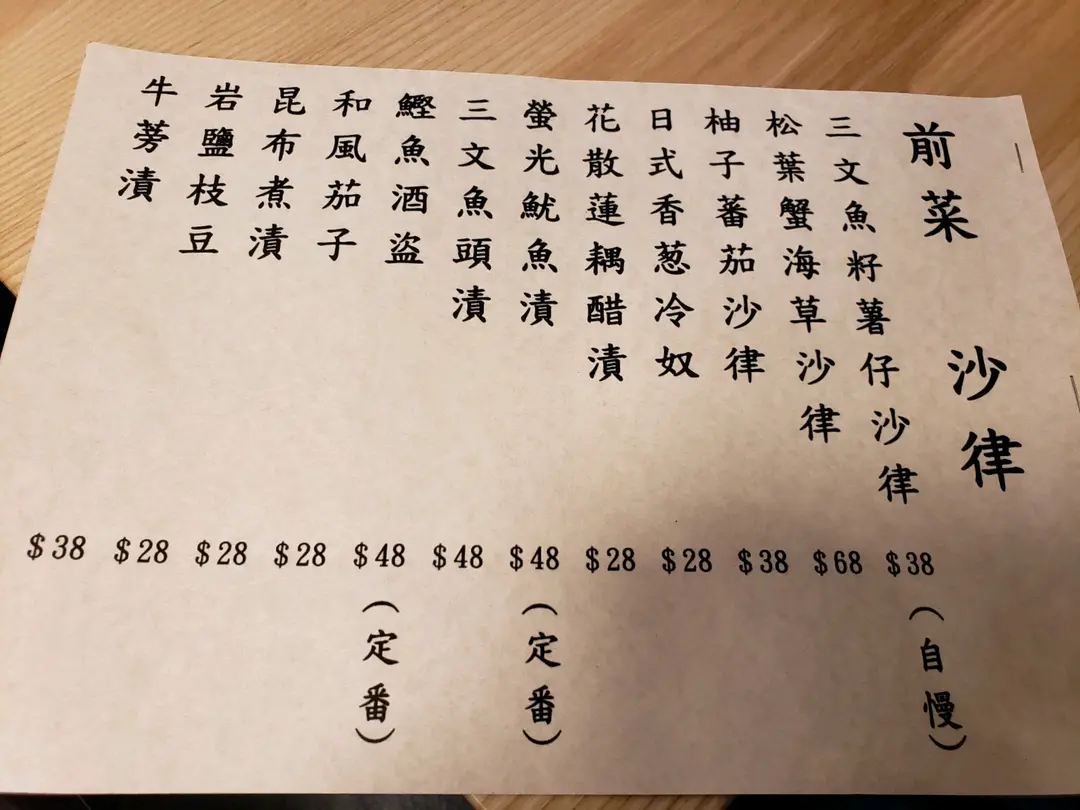 前菜 沙律
三文魚籽薯仔沙律 $38 (自慢)
松葉蟹海草沙律 $68
柚子蕃茄沙律 $38
日式香葱冷奴 $28
花散蓮耦醋漬 $28
螢光魷魚漬 $48 (定番)
三文魚頭漬 $48
鰹魚酒盜 $48 (定番)
和風茄子 $28
昆布煮漬 $28
岩鹽枝豆 $28
牛蒡漬 $38